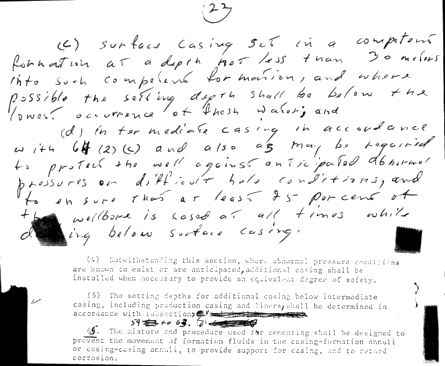 22
(c) surface casing set in a competent
formation at a depth not less than 30 meters
into such competent formation, and where
possible the setting depth shall be below the
lowest occurrence of fresh water; and
(d) intermediate casing in accordance
with 64 (2)(c) and also as may be required
to protect the well against anticipated abnormal
pressures or difficult hole conditions, and
to ensure that at least 25 percent of
the wellbore is cased at all times while
ing below surface casing.
(4) Notwithstanding this section, where abnormal pressure conditions
are known to exist or are anticipated, additional casing shall be
installed when necessary to provide an equivalent degree of safety.
(5) The setting depths for additional casing below intermediate
casing, including production casing and liners, shall be determined in
accordance with subsections
59 to 63.
65. The mixture and procedure used for cementing shall be designed to
prevent the movement of formation fluids in the casing-formation annuli
or casing-casing annuli, to provide support for casing, and to retard
corrosion.